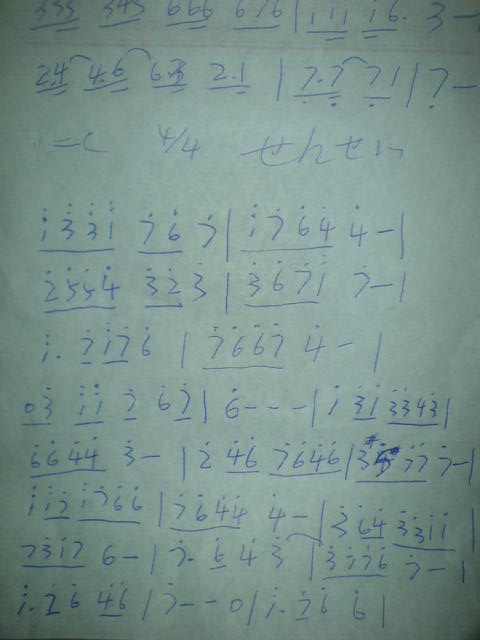 333 343 666 676 | i i i i 6. 3 —
2.4 4.6 6.3 2.1 | 7.7 7 1 | 7 —
1=C 4/4 せんせい
i 3 3 1 7 6 7 | i 7 6 4 4 — |
2 5 5 4 3 2 3 | 3 6 7 i 7 — |
i. 7 i 7 6 | 7 6 6 7 4 — |
0 3 i i 7 6 7 | 6 - - - | i 3 i 3 3 4 3 |
6 6 4 4 3 — | 2 4 6 7 6 4 6 | 7 7 7 — |
i i 7 i 7 6 6 | 7 6 4 4 4 — | 3 6 4 3 3 i i |
7 3 i 7 6 — | 7. 6 4 3 | 3 7 7 6 7 — |
i. 2 6 4 6 | 7 - - 0 | i. 7 6 6 |